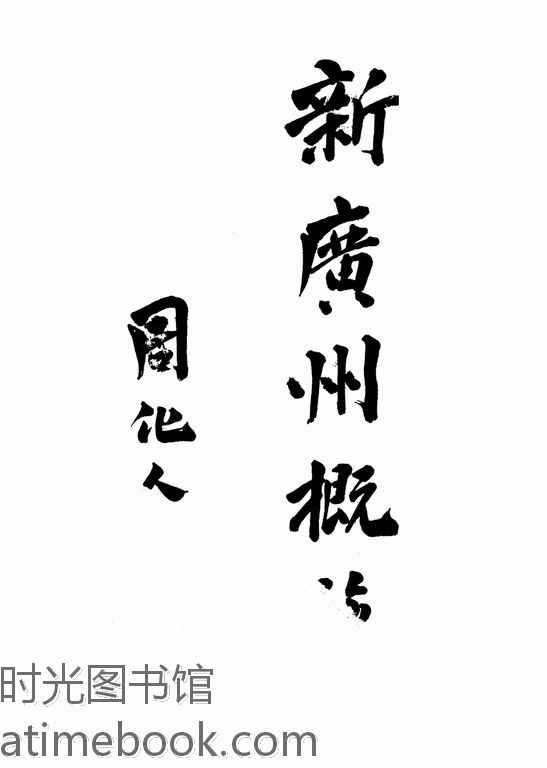 新廣州概
周化人
时光图书馆
atimebook.com